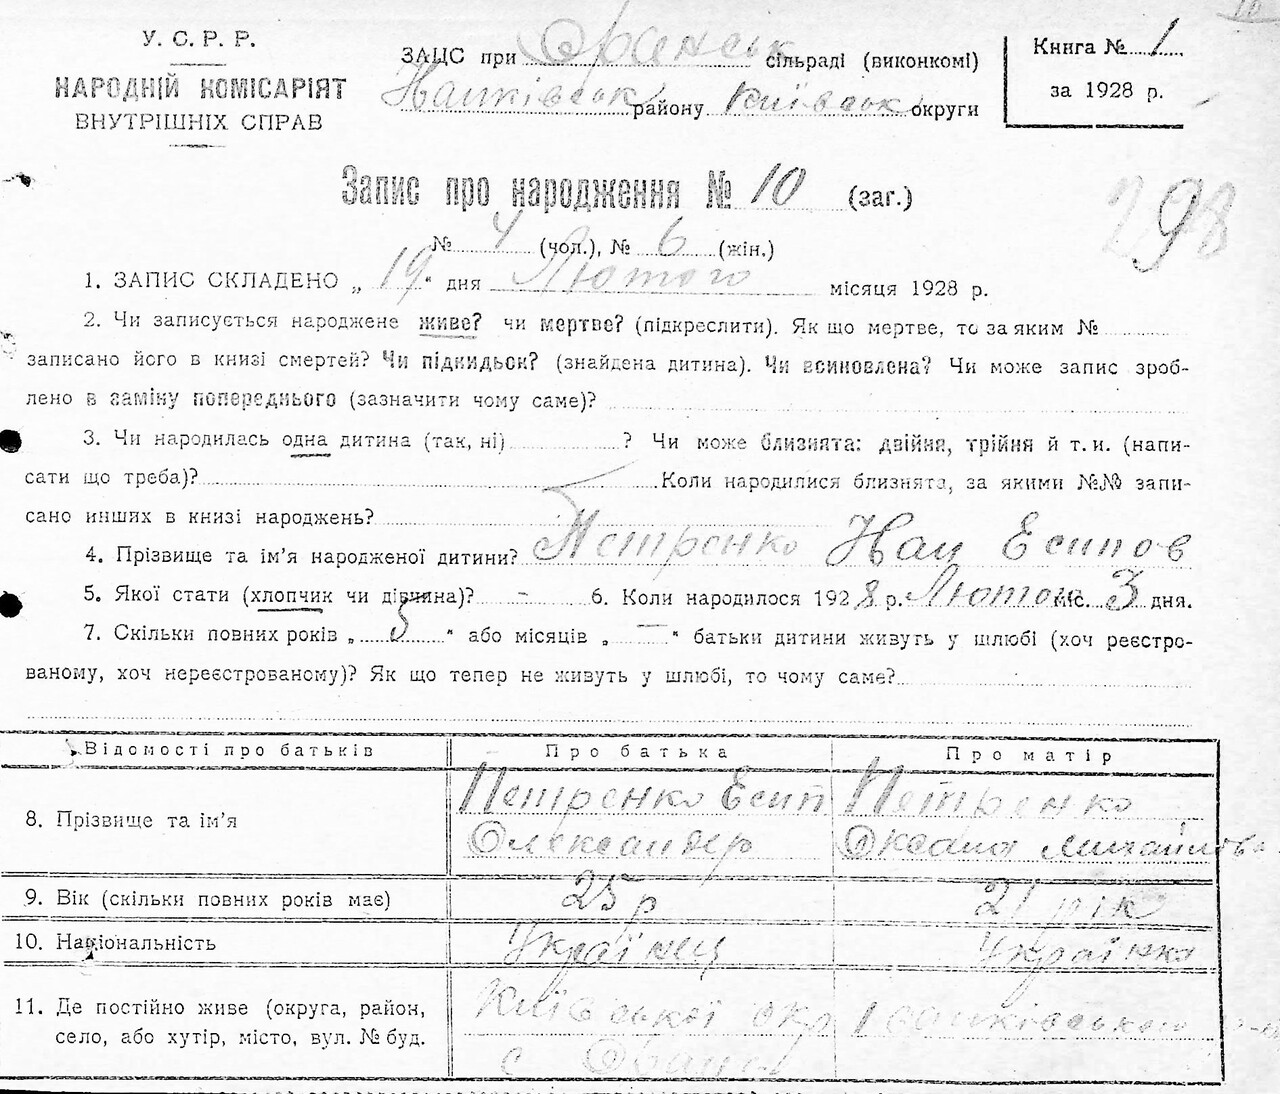 У. С. Р. Р.
НАРОДНІЙ КОМІСАРІЯТ
ВНУТРІШНІХ СПРАВ
ЗАЦС при Оранськ сільраді (виконкомі)
району Київськ округи
Книга № 1
за 1928 р.
Запис про народження № 10 (заг.)
298
№ 4 (чол.), № 6 (жін.)
1. ЗАПИС СКЛАДЕНО „ 19 " дня Лютого місяця 1928 р.
2. Чи записується народжене живе? чи мертве? (підкреслити). Як що мертве, то за яким №
записано його в книзі смертей? Чи підкидьок? (знайдена дитина). Чи всиновлена? Чи може запис зроб-
лено в заміну попереднього (зазначити чому саме)?
3. Чи народилась одна дитина (так, ні) ? Чи може близнята: двійня, трійня й т. и. (напи-
сати що треба)? Коли народилися близнята, за якими №№ запи-
сано инших в книзі народжень?
4. Прізвище та ім'я народженої дитини? Петренко Есипов
5. Якої стати (хлопчик чи дівчина)? - 6. Коли народилося 1928 р. Лютого міс. 3 дня.
7. Скільки повних років „ 5 " або місяців „ — " батьки дитини живуть у шлюбі (хоч реєстро-
ваному, хоч нереєстрованому)? Як що тепер не живуть у шлюбі, то чому саме?
Відомості про батьків Про батька Про матір
8. Прізвище та ім'я Петренко Есип Петренко
Олександер Оксана Михайлова
9. Вік (скільки повних років має) 25 р 21 рік
10. Національність Українец Українка
11. Де постійно живе (округа, район,
село, або хутір, місто, вул. № буд.
Київської окр
с